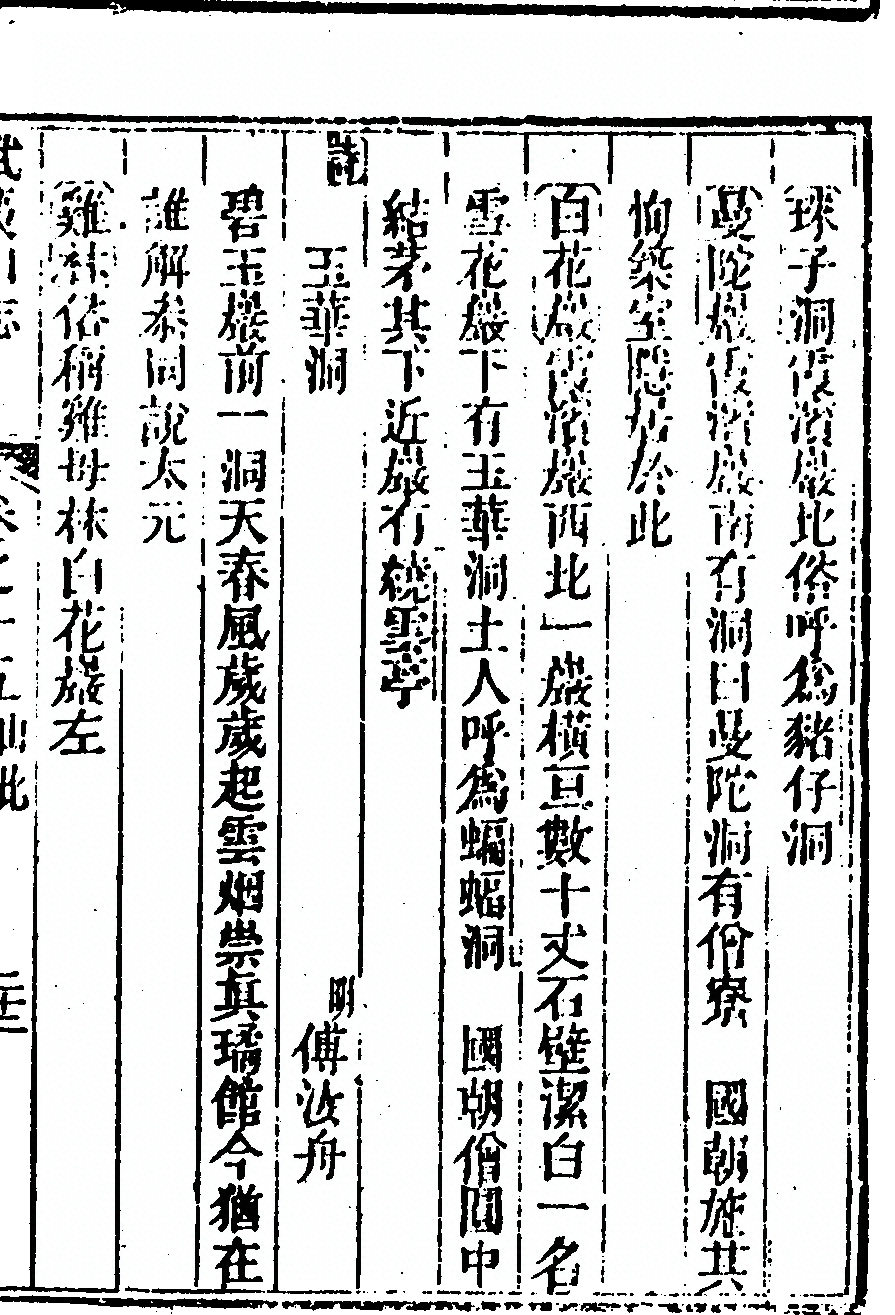 球子洞霞濱巖北俗呼爲豬仔洞
曼陀巖霞濱巖南有洞曰曼陀洞有僧寮　國朝施其
恂築室隱居於此
白花巖霞濱巖西北一巖橫亘數十丈石壁潔白一名
雪花巖下有玉華洞土人呼爲蝙蝠洞　國朝僧圓中
結茅其下近巖有繞雲亭
詩　玉華洞　明傅汝舟
碧玉巖前一洞天春風歲歲起雲烟崇眞璚館今猶在
誰解叅同說太元
雞林俗稱雞母林白花巖左
武夷山志　卷之十五　山北　二十二